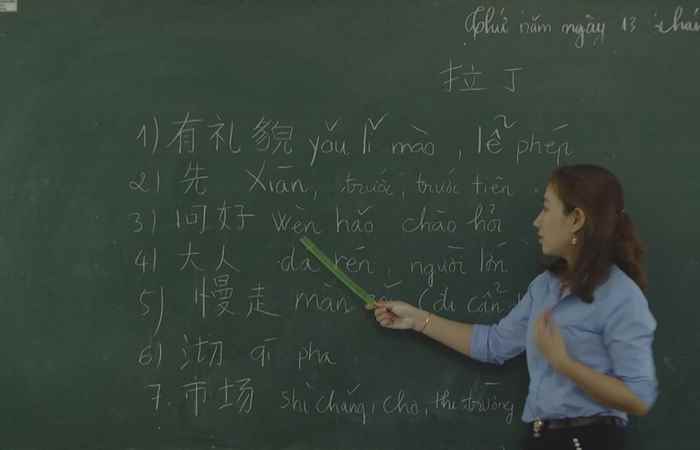 Thứ năm ngày 13 thá
拉丁
1) 有礼貌 yǒu lǐ mào, lễ phép
2) 先 Xiān, trước, trước tiên
3) 问好 wèn hǎo chào hỏi
4) 大人 dà rén, người lớn
5) 慢走 màn (đi cẩn
6) 沏 qī pha
7. 市场 shì chǎng, chợ, thị trường